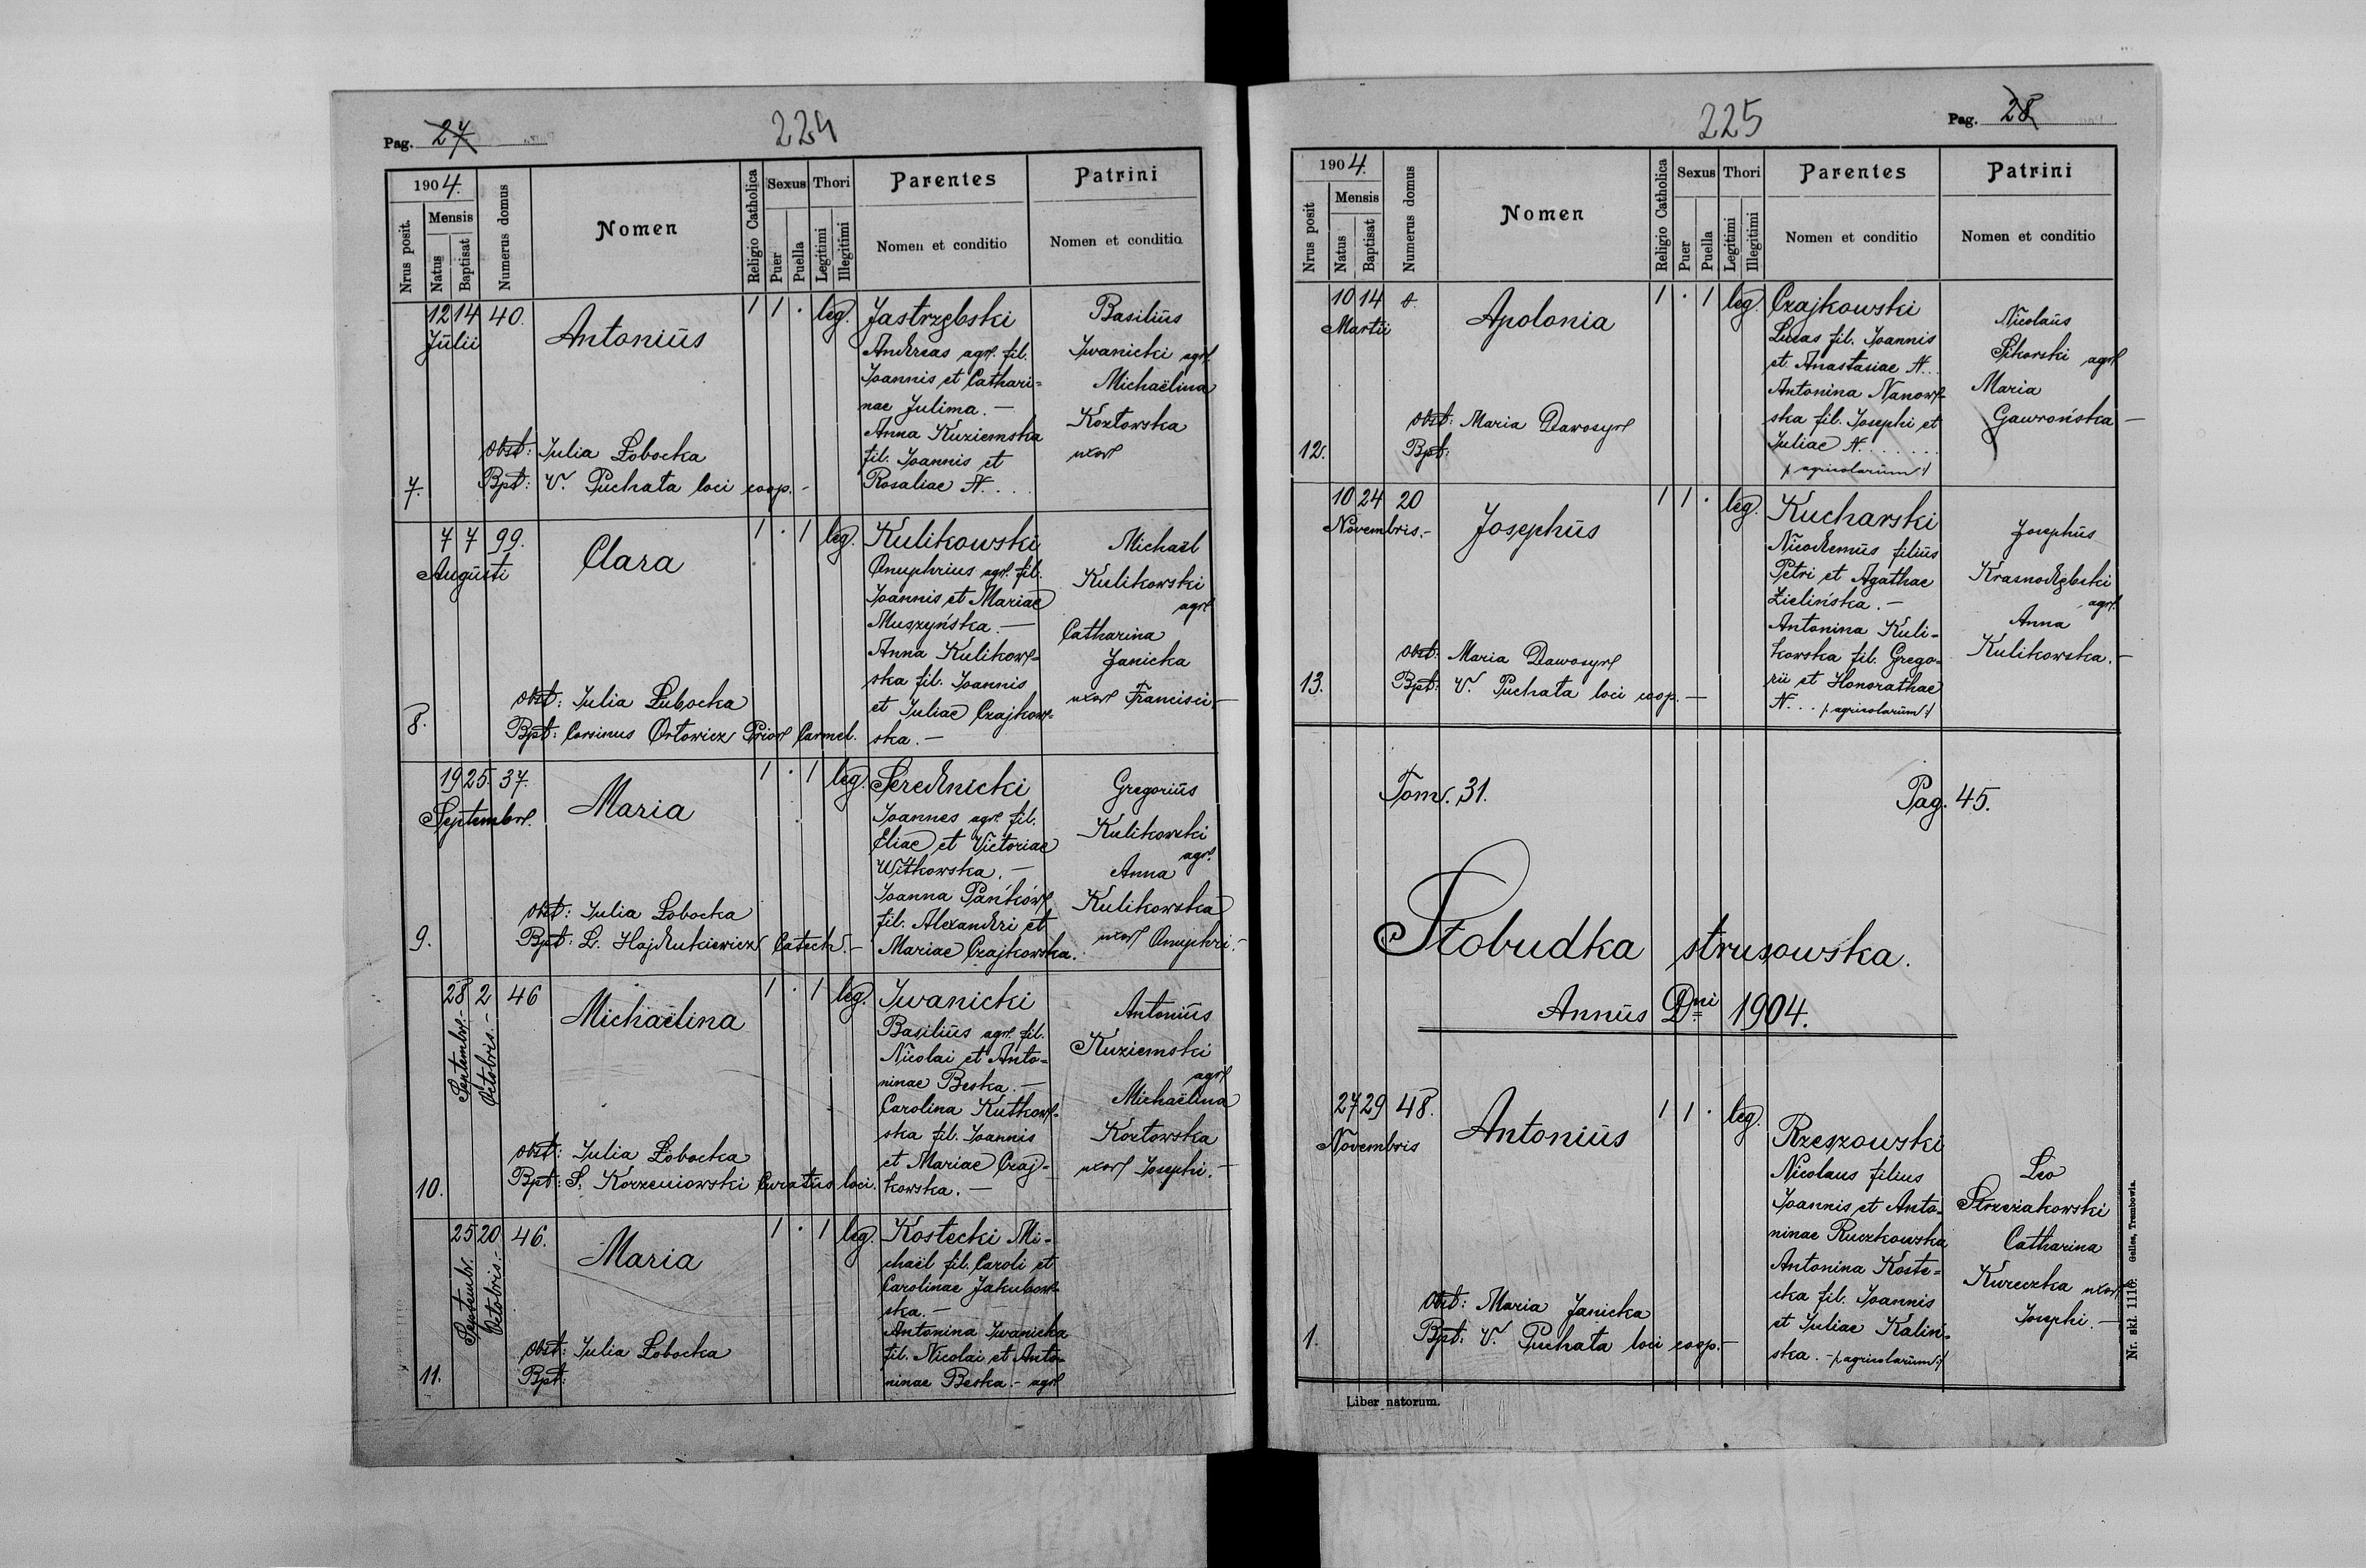 Pag. 27
224
1904.
Nrus posit.
Mensis
Natus
Baptisat
Numerus domus
Nomen
Religio Catholica
Sexus
Puer
Puella
Thori
Legitimi
Illegitimi
Parentes
Nomen et conditio
Patrini
Nomen et conditio
12 14 40.
Julii
Antonius
1 1 · leg.
Jastrzębski
Andreas agr. fil.
Joannis et Cathari=
nae Julima. —
Anna Kuziemska
fil. Joannis et
Rosaliae N. . . .
Basilius
Iwanicki agr.
Michaëlina
Kozłowska
uxor
obst: Julia Łobocka
7. Bpt: V. Puchała loci coop. -
7 7 99.
Augusti
Clara
1 · 1 leg.
Kulikowski
Onuphrius agr. fil.
Joannis et Mariae
Muszyńska. —
Anna Kulikow=
ska fil. Joannis
et Juliae Czajkow=
ska. —
Michaël
Kulikowski
agr.
Catharina
Janicka
uxor Francisci. —
obst: Julia Łubocka
8. Bpt: Corsinus Ortowicz Prior Carmel.
19 25. 37.
Septembr.
Maria
1 · 1 leg.
Serednicki
Joannes agr. fil.
Eliae et Victoriae
Witkowska. —
Joanna Pańków
fil. Alexandri et
Mariae Czajkowska.
Gregorius
Kulikowski
agr.
Anna
Kulikowska
uxor Onuphri. -
obst: Julia Łobocka
9. Bpt: L. Hajdukiewicz Catech. -
28 2 46
Septembr. -
Octobris. -
Michaëlina
1 · 1 leg.
Iwanicki
Basilius agr. fil.
Nicolai et Anto=
ninae Beska. —
Carolina Kutkow=
ska fil. Joannis
et Mariae Czaj=
kowska. —
Antonius
Kuziemski
agr
Michaëlina
Kozłowska
uxor Josephi. —
obst: Julia Łobocka
10. Bpt: S. Korzeniowski Curatus loci.
25 20 46.
Septembr.
Octobris. -
Maria
1 · 1 leg.
Kostecki Mi=
chaël fil. Caroli et
Carolinae Jakubow=
ska. —
Antonina Iwanicka
fil. Nicolai et Anto=
ninae Beska. - agr
obst: Julia Łobocka
11. Bpt:
225
Pag. 28
1904.
Nrus posit
Mensis
Natus
Baptisat
Numerus domus
Nomen
Religio Catholica
Sexus
Puer
Puella
Thori
Legitimi
Illegitimi
Parentes
Nomen et conditio
Patrini
Nomen et conditio
10 14
Martii
Apolonia
1 · 1 leg.
Czajkowski
Lucas fil. Joannis
et Anastasiae N. . .
Antonina Nanow=
ska fil. Josephi et
Juliae N. . . . . . .
/: agricolarum :/
Nicolaus
Sikorski agr
Maria
Gawrońska —
obst: Maria Dawosyr
12. Bpt:
10 24 20
Novembris. -
Josephus
1 1 · leg.
Kucharski
Nicodemus filius
Petri et Agathae
Zielińska. —
Antonina Kuli=
kowska fil. Grego=
rii et Honorathae
N. . . /: agricolarum :/
Josephus
Krasnodębski
agr.
Anna
Kulikowska. —
obst: Maria Dawosyr
13. Bpt: V. Puchała loci coop. —
Tom. 31. Pag. 45.
Słobudka strusowska.
Annus Dni 1904.
27 29 48.
Novembris
Antonius
1 1 · leg.
Rzeszowski
Nicolaus filius
Joannis et Anto=
ninae Ruczkowska
Antonina Koste=
cka fil. Joannis
et Juliae Kaliń=
ska. - /: agricolarum :/
Leo
Strzeżakowski
Catharina
Kureczka uxor
Josephi. —
obst: Maria Janicka
1. Bpt: V. Puchała loci coop. —
Liber natorum.
Nr. skł. 1116. Gelles, Trembowla.